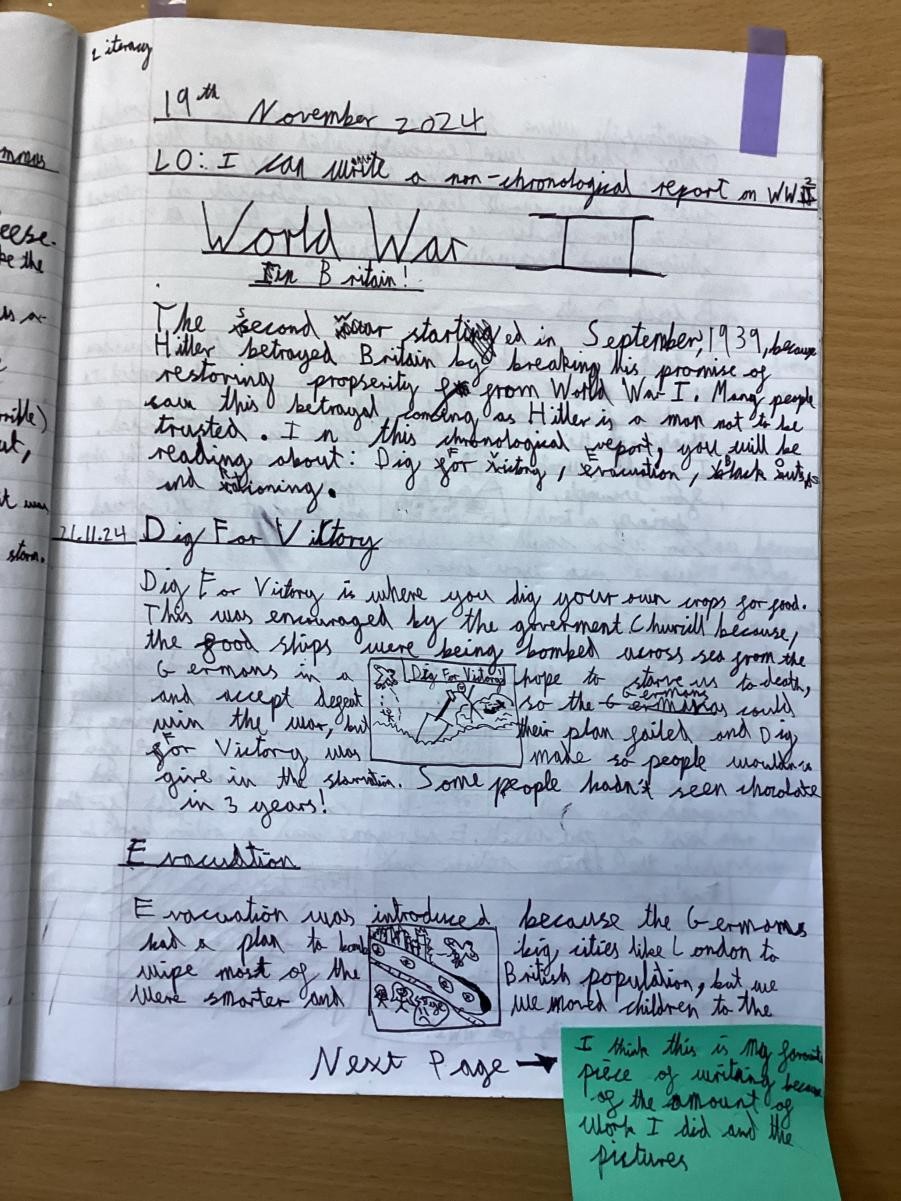 Literacy
19th November 2024
LO: I can write a non-chronological report on WW2
World War II
In Britain!
The Second war started in September, 1939, because
Hitler betrayed Britain by breaking his promise of
restoring propserity from World War I. Many people
saw this betrayal coming as Hitler is a man not to be
trusted. In this chronological report, you will be
reading about: Dig For Victory, Evacuation, Black Outs
and Rationing.
21.11.24 Dig For Victory
Dig For Victory is where you dig your own crops for food.
This was encouraged by the goverment Churill because,
the food ships were being bombed across sea from the
Germans in a hope to starve us to death,
and accept defeat so the Germans could
win the war, but their plan failed and Dig
For Victory was make so people wouldn't
give in the starvation. Some people hadn't seen chocolate
in 3 years!
Dig For Victory
Evacuation
Evacuation was introduced because the Germans
had a plan to bomb big cities like London to
wipe most of the British population, but we
were smarter and we moved children to the
Next Page →
I think this is my favourite
piece of writing because
of the amount of
work I did and the
pictures
eese.
ke the
rrible)
ut,
t was
storm.